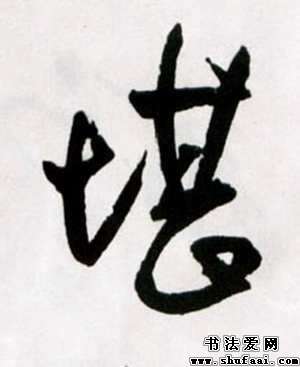 堪
书法爱网
www.shufaai.com